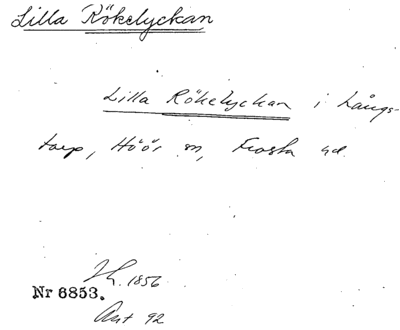 Lilla Rökelyckan
Lilla Rökelyckan i Långs-
torp, Höör sn, Frosta hd.
Th. 1856
Nr 6853.
Ant 92